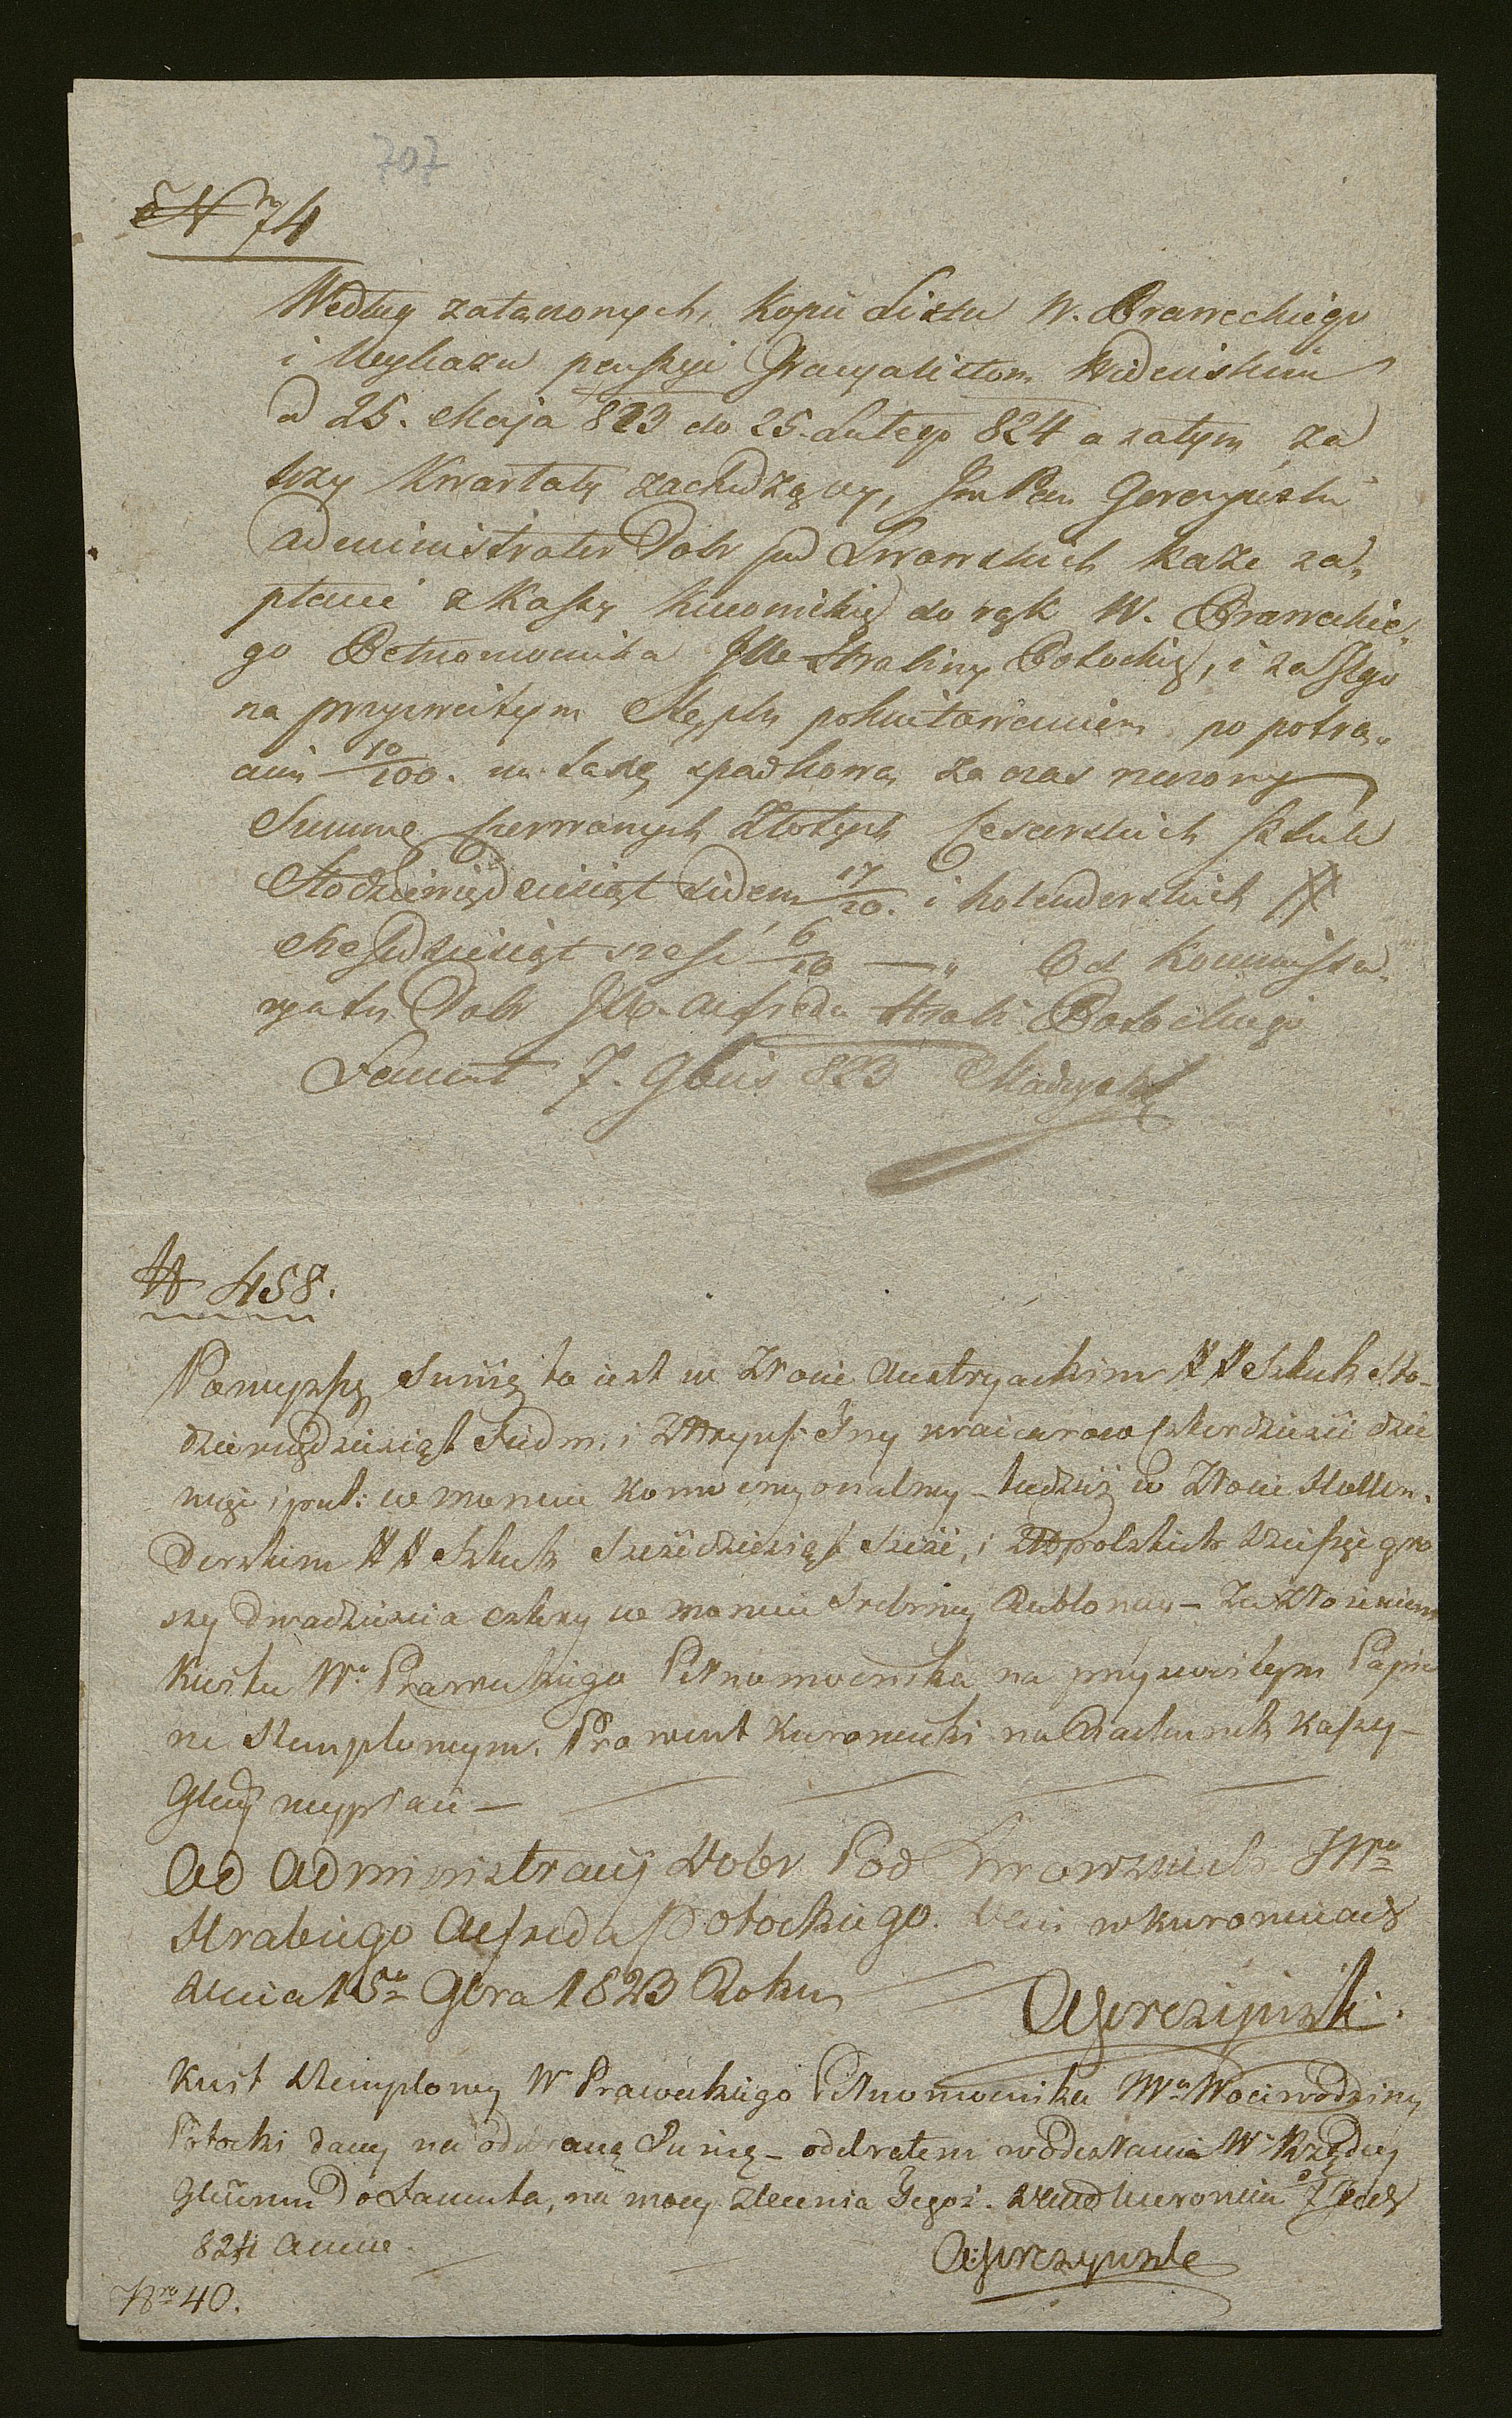 707
Nro 74
Według załączonych kopii Listu W. Praweckiego
i Wykazu penszyi Gracyalistom Wideńskim
od 25. Maja 823 do 25. Lutego 824 a zatym za
trzy Kwartały zachodzący, Jm Pan Gorczyński
administrator Dobr pod Lwowskich każe za„
płacić z Kassy kurowickiej do rąk W. Praweckie„
go Pełnomocnika JW Hrabiny Potockiej, i za Jego
na przyzwoitym Stęplu pokwitowaniem po potrą„
ceniu 10/100. na taxę spadkową za czas rzeczony
Summę czerwonych Złotych Cesarskich sztuk
Stodziewięćdziesiąt siedem 17/20. i holenderskich ##
Sześćdziesiąt sześć 6/10 — „ Od Kommissa„
ryatu Dobr JW. Alfreda Hrabi Potockiego
Łańcut 7. 9bris 823
N 458.
Powyższą Sumę to iest w Złocie Austryackim ## Sztuk Sto-
dziewiędziesiąt Siedm i ZłRyńs: Trzy kraicarow czterdzieści dzie
więć i puł: w monecie konwencyonalney – tudzież w Złocie Hollen„
derskim ## Sztuk Sześćdziesiąt Sześć, i Złpolskich dziesięć gro
szy dwadzieścia cztery w monecie Srebrney Rublowey – Za złożeniem
Kwitu Wo Praweckiego Pełnomocnika na przyzwoitym Papie
rze Stemplowym. Prowent Kurowicki na Rachunek Kassy –
Głwney wypłaci —
Od Administracyi Dobr Pod Lwowskich JWo
Hrabiego Alfreda Potockiego. Dan w Kurowicach
dnia 15o 9bra 1823 Roku
AGorczyński.
Kwit Stemplowy W Praweckiego Pełnomocnika JWo Woiewodziny
Potocki dany na odebraną Sumę – odebrałem w odesłania Wo Rządcy
Głównu Do Łańcuta, na mocy zlecenia Jegoż.
824 Anno.
AGorczyński
Nro 40.